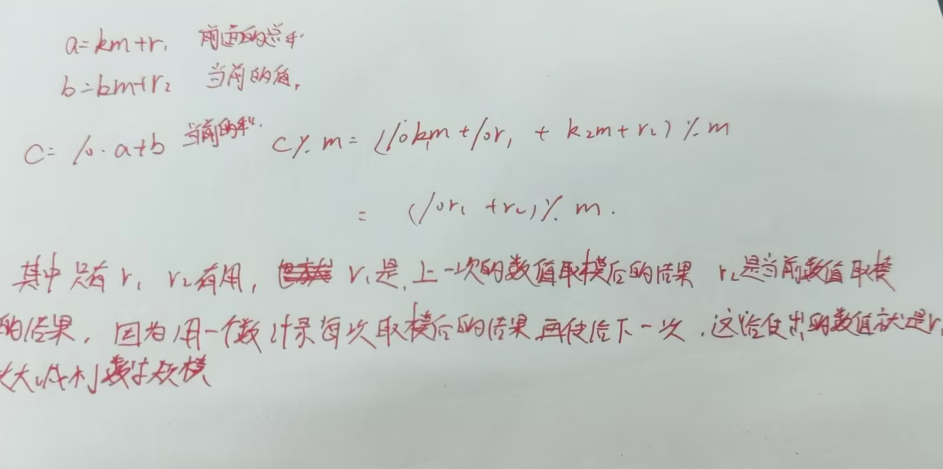 a=km+r₁ 前面的总和
b=km+r₂ 当前的值,
C=10·a+b 当前的和 C%m=(10k₁m+10r₁+k₂m+r₂)%m
=(10r₁+r₂)%m.
其中只有r₁ r₂有用, r₁是上一次的数值取模后的结果 r₂是当前数值取模
的结果,因为用一个数记录每次取模后的结果再使给下一次,这给使出的数值就是r
大大减小数字规模